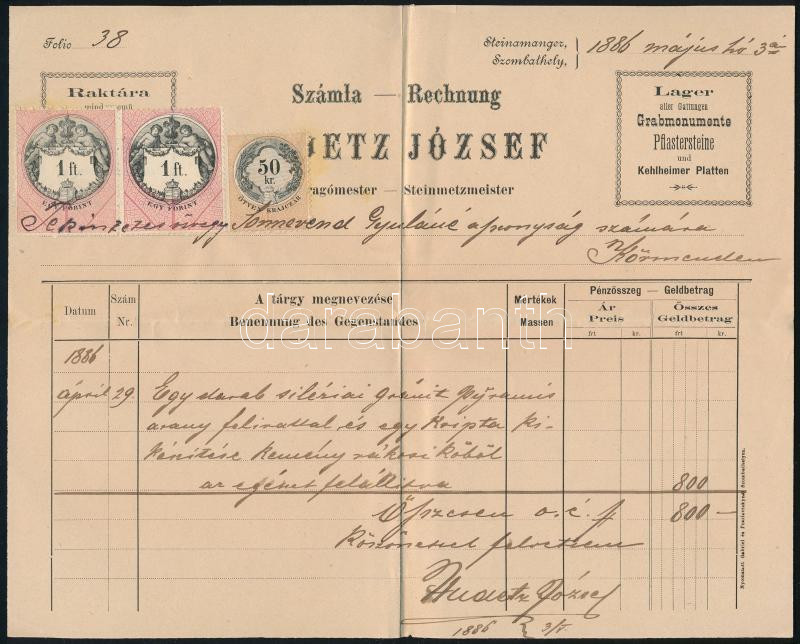 Folio 38
Steinamanger,
Szombathely, 1886 május hó 3án
Raktára
Számla — Rechnung
ETZ JÓZSEF
ragómester — Steinmetzmeister
Lager
aller Gattungen
Grabmonumente
Pflastersteine
und
Kehlheimer Platten
1 ft.
EGY FORINT
1 ft.
EGY FORINT
50
kr.
ÖTVEN KRAJCZÁR
özvegy Gyuláné asszonyság számára
Körmenden
Datum
Szám
Nr.
A tárgy megnevezése
Benennung des Gegenstandes
Mértékek
Massen
Pénzösszeg — Geldbetrag
Ár
Preis
Összes
Geldbetrag
frt kr. frt kr.
darabanth
1886
április 29. Egy darab siléziai gránit Pyramis
arany felirattal és egy Kripta ki-
készitése kemény rákosi kőből
az egészet felállitva 800
Összesen o. é. f 800 —
Köszönettel felvettem
József
1886 3/V.
Nyomatott Gabriel és Szombathelyen.